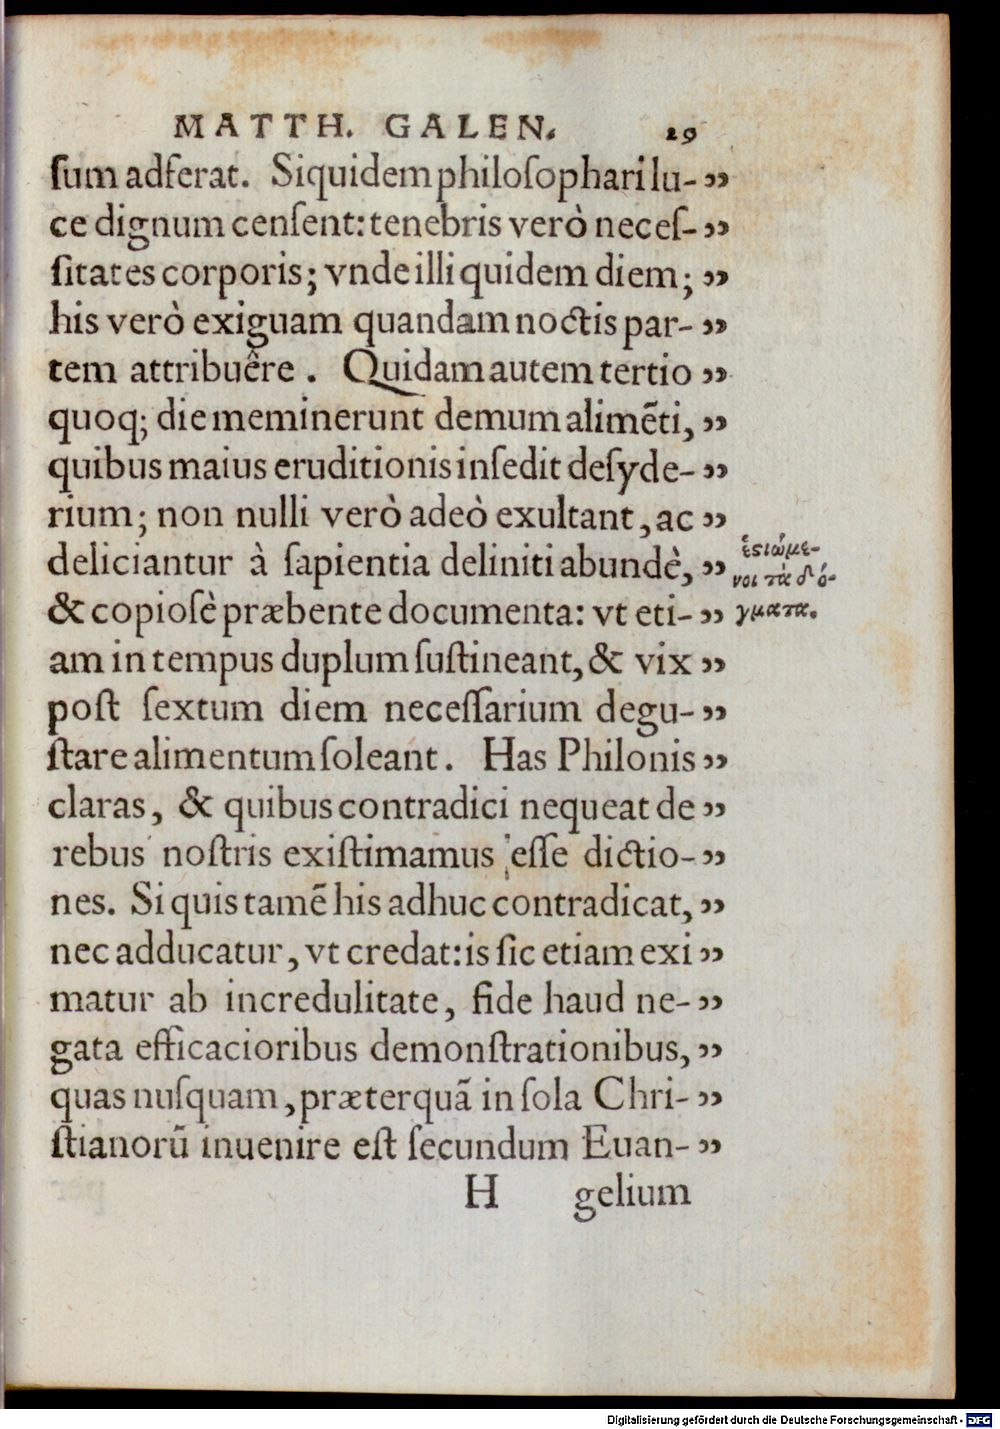 MATTH. GALEN. 29
ſum adferat. Siquidem philoſophari lu- ”
ce dignum cenſent: tenebris verò neceſ- ”
ſitates corporis; vnde illi quidem diem; ”
his verò exiguam quandam noctis par- ”
tem attribuêre. Quidam autem tertio ”
quoq; die meminerunt demum alimẽti, ”
quibus maius eruditionis inſedit deſyde- ”
rium; non nulli verò adeò exultant, ac ”
deliciantur à ſapientia deliniti abundè, ”
& copioſè præbente documenta: vt eti- ”
am in tempus duplum ſuſtineant, & vix ”
poſt ſextum diem neceſſarium degu- ”
ſtare alimentum ſoleant. Has Philonis ”
claras, & quibus contradici nequeat de ”
rebus noſtris exiſtimamus eſſe dictio- ”
nes. Si quis tamẽ his adhuc contradicat, ”
nec adducatur, vt credat: is ſic etiam exi ”
matur ab incredulitate, fide haud ne- ”
gata efficacioribus demonſtrationibus, ”
quas nuſquam, præterquã in ſola Chri- ”
ſtianorũ inuenire eſt ſecundum Euan- ”
H gelium
ἑστιώμε-
νοι τὰ δό-
γματα.
Digitalisierung gefördert durch die Deutsche Forschungsgemeinschaft - DFG